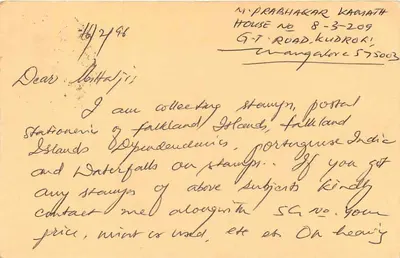 N. PRABHAKAR KAMATH
HOUSE NO 8-3-209
G.T. ROAD, KUDROLI,
Mangalore 575003
16/2/96
Dear
I am collecting stamps, postal
stationeries of falkland Islands, falkland
Islands Dependencies, portuguese India
and Waterfalls on stamps.. If you get
any stamps of above subjects kindly
contact me alongwith SG No. your
price, mint or used, etc etc On hearing